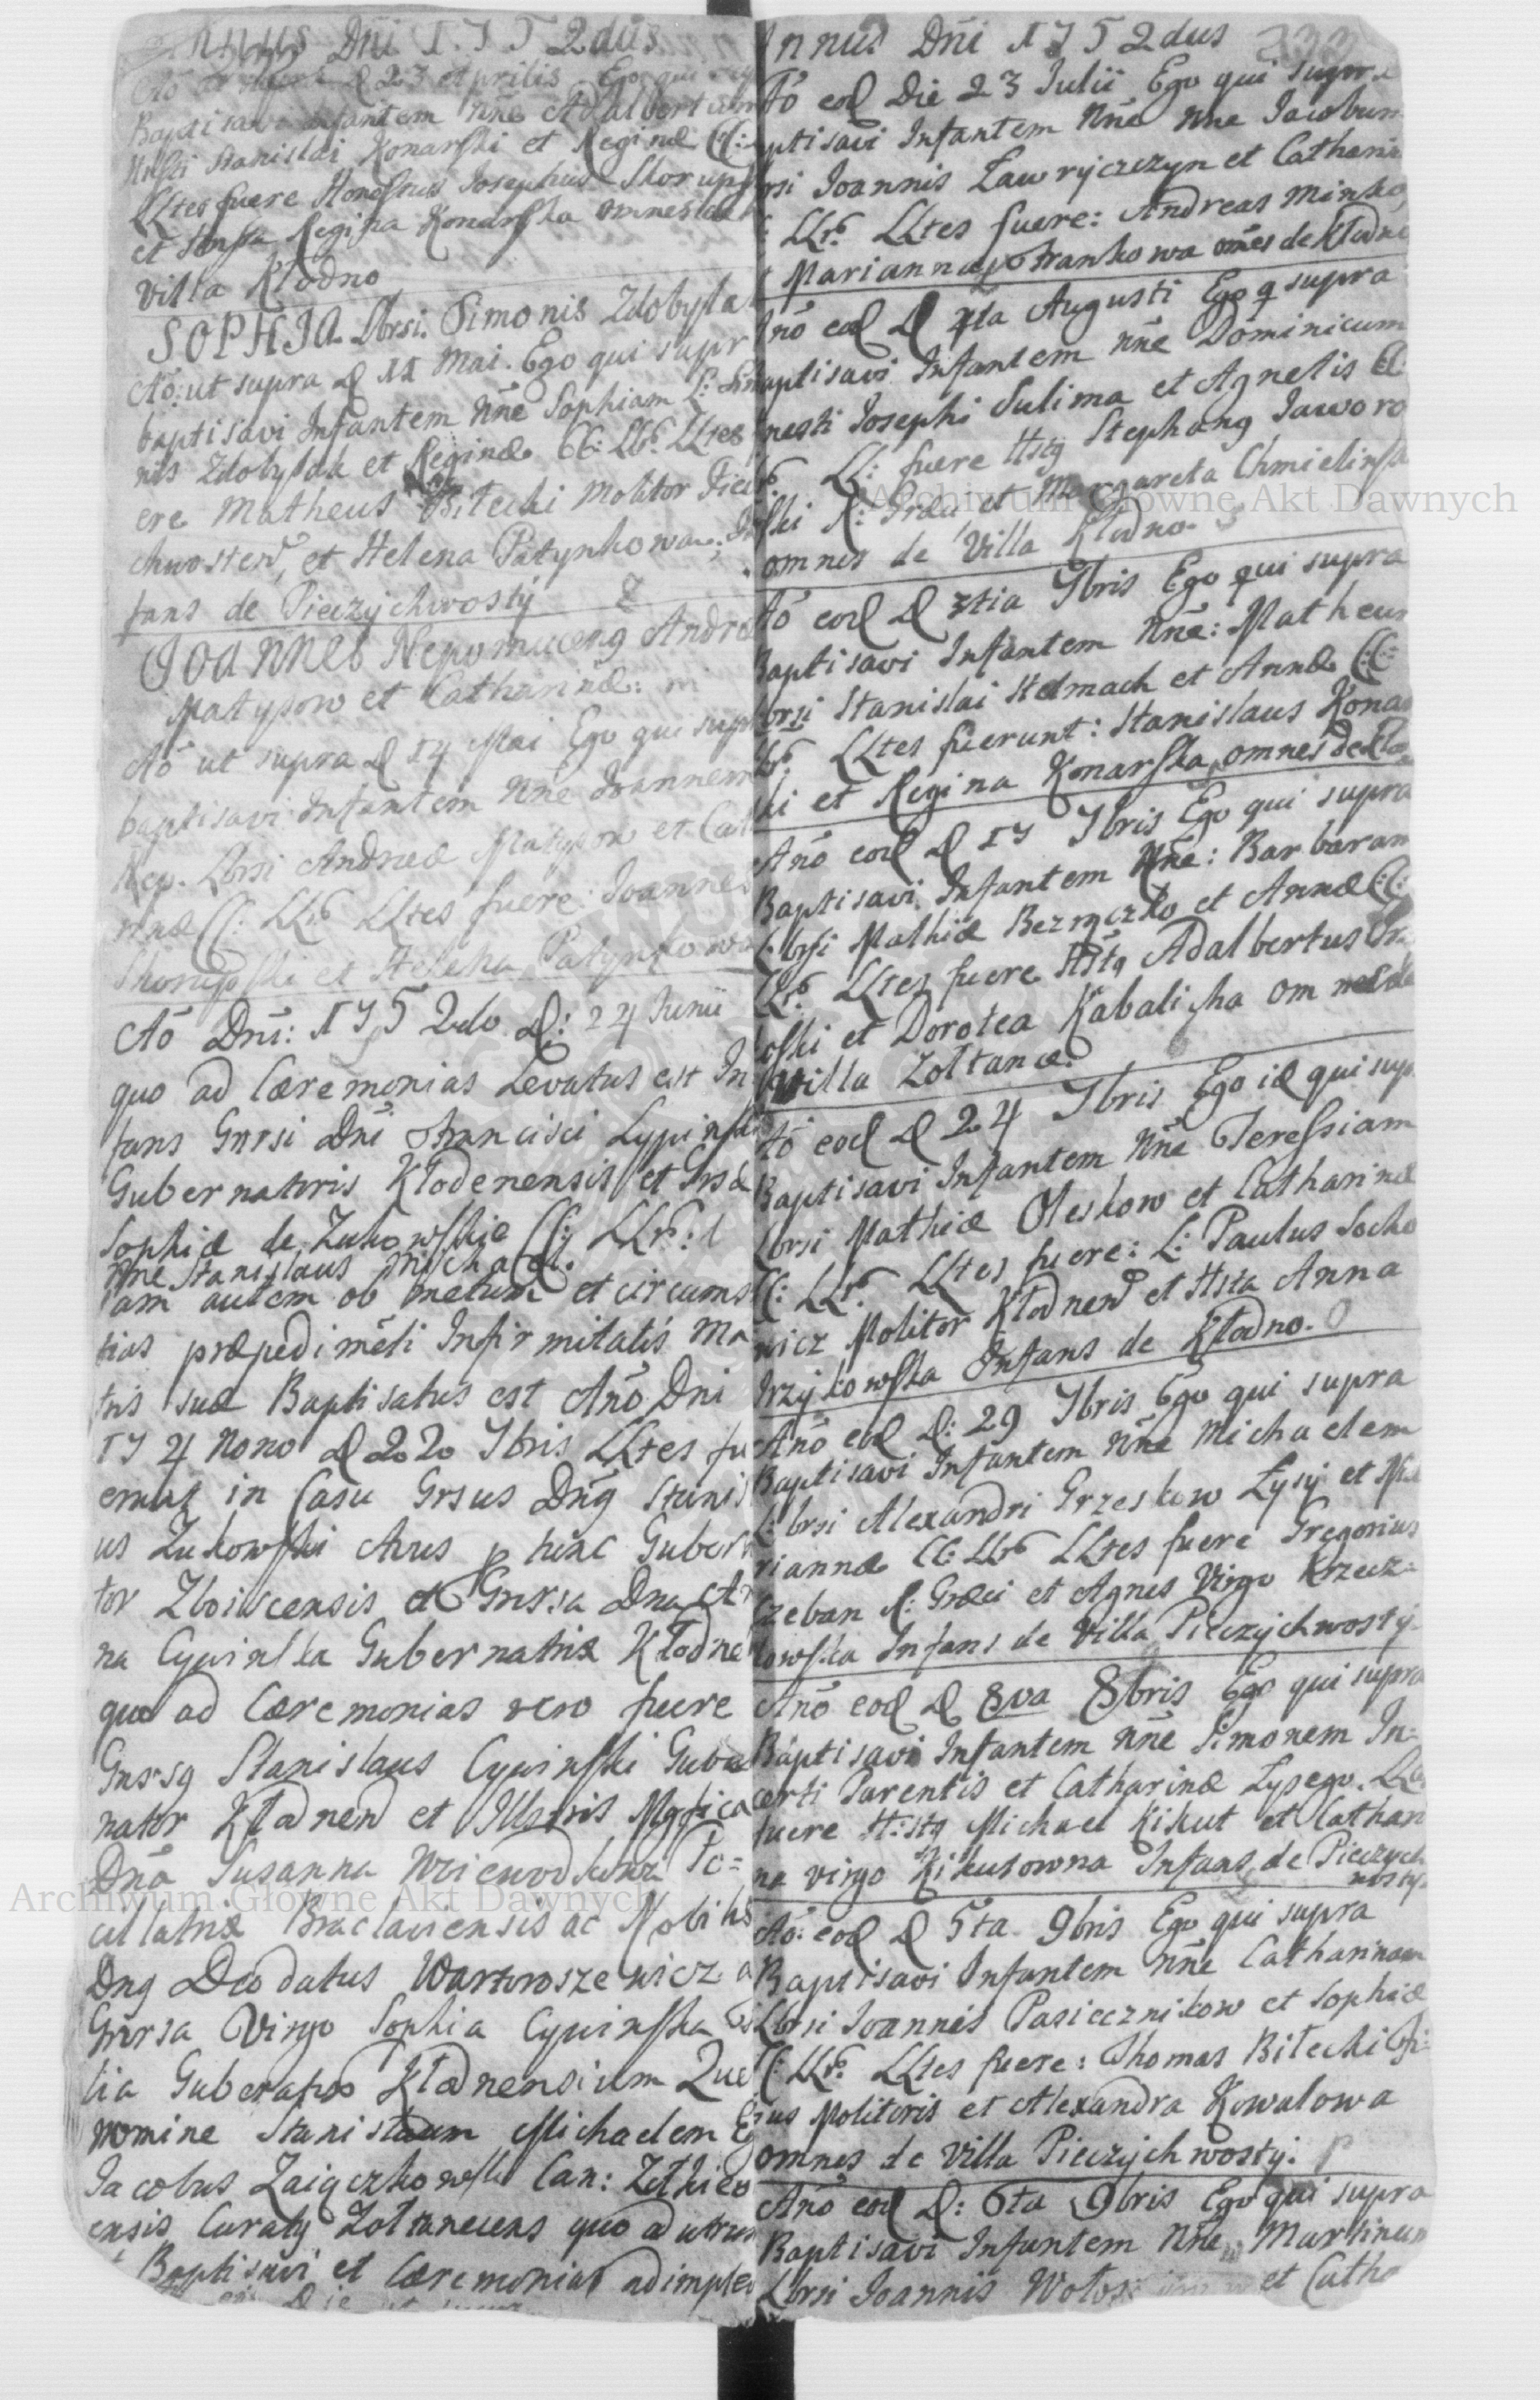 Annus Dñi 1752dus
Baptisavi Infantem Nñe Adalbertum
Stanislai Konarski et Reginæ CC:
LLtes fuere Honestus Josephus Skorups
et Regina Konarska omnes de
Villa Kłodno
SOPHIA Lbrsi. Simonis Zdobyla
Aõ: ut supra D 11 Mai. Ego qui supr
baptisavi Infantem Nñe Sophiam L: Simo
nis Zdobylak et Reginæ CC: LLr LLtes
ere Matheus Bilecki Molitor Piecz
chwosten, et Helena Patynkowa; In
fans de Pieczychwosty
JOANNES Nepomuceng Andre
Matysow et Catharinæ:
Aõ ut supra D 14 Mai Ego qui supr
baptisavi Infantem Nñe Joannem
Nep. Lbrsi Andreæ Matysow et Cath
rinæ CC: LLr LLtes fuere: Joannes
Skorupski et Helena Patynkowa
Aõ Dñi: 1752do D: 24 Junii
quo ad Cæremonias Levatus est In
fans Gnrsi Dñi Francisci Cypinski
Gubernatoris Kłodenensis et Grsæ
Sophiæ de Zukowskie CC: LLr:
Nñe Stanislaus Michael.
iam autem ob metum et circums
tias præpedimēti Infirmitatis Ma
tris suæ Baptisatus est Año Dni
174 nono D 20 7bris LLtes fu
erunt in Casu Grsus Dng Stanis
us Zukowski Avus p tunc Guber
tor Zboiscensis et Gnrsa Dna A
na Cywinska Gubernatrix Kłodne
quo ad Cæremonias vero fuere
Gnrsg Stanislaus Cywinski Guber
nator Kłodnen et Illstris Mgfica
Dña Susanna Woiewodkowa Po=
cillatrix Braclaviensis ac Nobilis
Dng Deodatus Wartwoszewicz a
Gnrsa Virgo Sophia Cywinska
lia Guberatros Kłodnensium Que
nomine Stanislaum Michaelem E
Jacobus Zaigczkowski Can:
ensis Curatg Żołtanecens quo ad utrum
Baptisavi et Cæremonias adimplev
Annus Dñi 1752dus
Aõ eod Die 23 Julii Ego qui supra
Baptisavi Infantem Nñe Jacobum
rsi Joannis Ławryczczyn et Catharin
LLr. LLtes fuere: Andreas Minko,
Marianna Frankowa omes de Kłodno
Año eod D 4ta Augusti Ego q supra
baptisavi Infantem nñe Dominicum
nesti Josephi Sulima et Agnetis CC:
LL: fuere Hstg Stephang Jaworo
wski R: Græci et Margareta Chmielinska
omnes de Villa Kłodno.
Aõ eod D 3tia 7bris Ego qui supra
Baptisavi Infantem Nñe: Matheum
Lbrsi Stanislai Helmach et Annæ CC:
LLr. LLtes fuerunt: Stanislaus Konar
ski et Regina Konarska omnes de Kło
Año eod D 17 7bris Ego qui supra
Baptisavi Infantem Nñe: Barbaram
Lbrsi Mathiæ Bezręczko et Annæ CC:
LLr. LLtes fuere Hstg Adalbertus
oski et Dorotea Kabalicha omnes de
Villa Zołtance.
Aõ eod D 24 7bris Ego id qui sup
Baptisavi Infantem Nñe Teressiam
Lbrsi Mathiæ Oleskow et Catharinæ
CC: LLr. LLtes fuere: L: Paulus Socho
wicz Molitor Kłodnen et Hsta Anna
Irzykowska Infans de Kłodno.
Año eod D: 29 7bris Ego qui supra
Baptisavi Infantem nñe Michaelem
L:brsi Alexandri Grzeskow Łysy et Ma
riannæ CC: LLr LLtes fuere Gregorius
Czeban R: Græci et Agnes Virgo Krzecz=
kowska Infans de Villa Pieczychwosty.
Año eod D 8va 8bris Ego qui supra
Baptisavi Infantem nñe Simonem In=
certi Parentis et Catharinæ Łysego. LLt
fuere H:stg Michael Kikut et Cathari
na virgo Kikutowna Infans de Pieczych
wosty.
Aõ: eod D 5ta 9bris Ego qui supra
Baptisavi Infantem nñe Catharinam
Lbrsi Joannis Pasiecznikow et Sophiæ
CC: LLr. LLtes fuere: Thomas Bilecki Fi=
ius Molitoris et Alexandra Kowalowa
omnes de Villa Pieczychwosty.
Año eod D: 6ta 9bris Ego qui supra
Baptisavi Infantem Nñe Martinum
Lbrsi Joannis et Catha
Archiwum Główne Akt Dawnych
Archiwum Główne Akt Dawnych